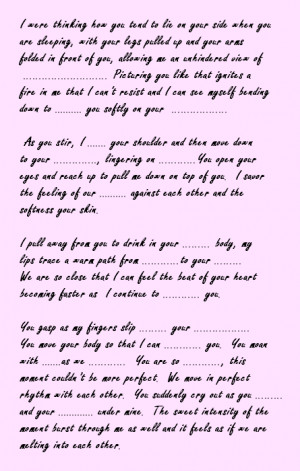 I were thinking how you tend to lie on your side when you
are sleeping, with your legs pulled up and your arms
folded in front of you, allowing me an unhindered view of
............................ Picturing you like that ignites a
fire in me that I can't resist and I can see myself bending
down to .......... you softly on your ..................
As you stir, I ....... your shoulder and then move down
to your ............., lingering on ............You open your
eyes and reach up to pull me down on top of you. I savor
the feeling of our .......... against each other and the
softness your skin.
I pull away from you to drink in your ......... body, my
lips trace a warm path from ............to your .........
We are so close that I can feel the beat of your heart
becoming faster as I continue to ............ you.
You gasp as my fingers slip ......... your ..................
You move your body so that I can ............ you. You moan
with ......as we ............ You are so ............, this
moment couldn't be more perfect. We move in perfect
rhythm with each other. You suddenly cry out as you .........
and your ............ under mine. The sweet intensity of the
moment burst through me as well and it feels as if we
are melting into each other.